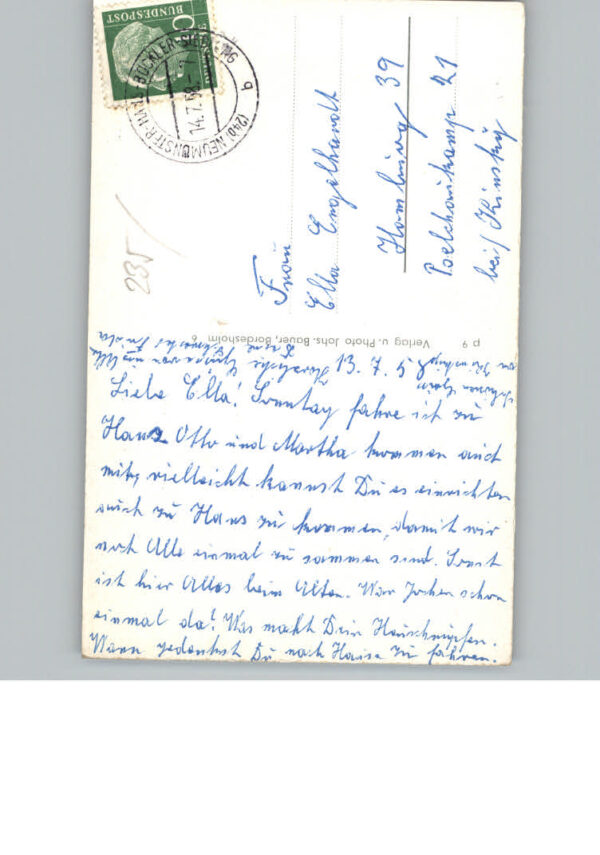 DEUTSCHE BUNDESPOST
(24b) NEUMÜNSTER
14.7.58
b
235/
Frau
Ella Engelhardt
Hamburg 39
Poelchaukamp 21
bei/ Kinsky
p 9 Verlag u. Photo Johs. Bauer, Bordesholm 6
13.7.5
Herzliche Grüsse von uns Allen
Deine
Liebe Ella! Sonntag fahre ich zu
Hans Otto und Martha kommen auch
mit, vielleicht kannst Du es einrichten
auch zu Hans zu kommen, damit wir
noch Alle einmal zu sammen sind. Sonst
ist hier Alles beim Alten. War Jochen schon
einmal da? Was macht Dein Heuschnupfen.
Wann gedenkst Du nach Hause zu fahren.